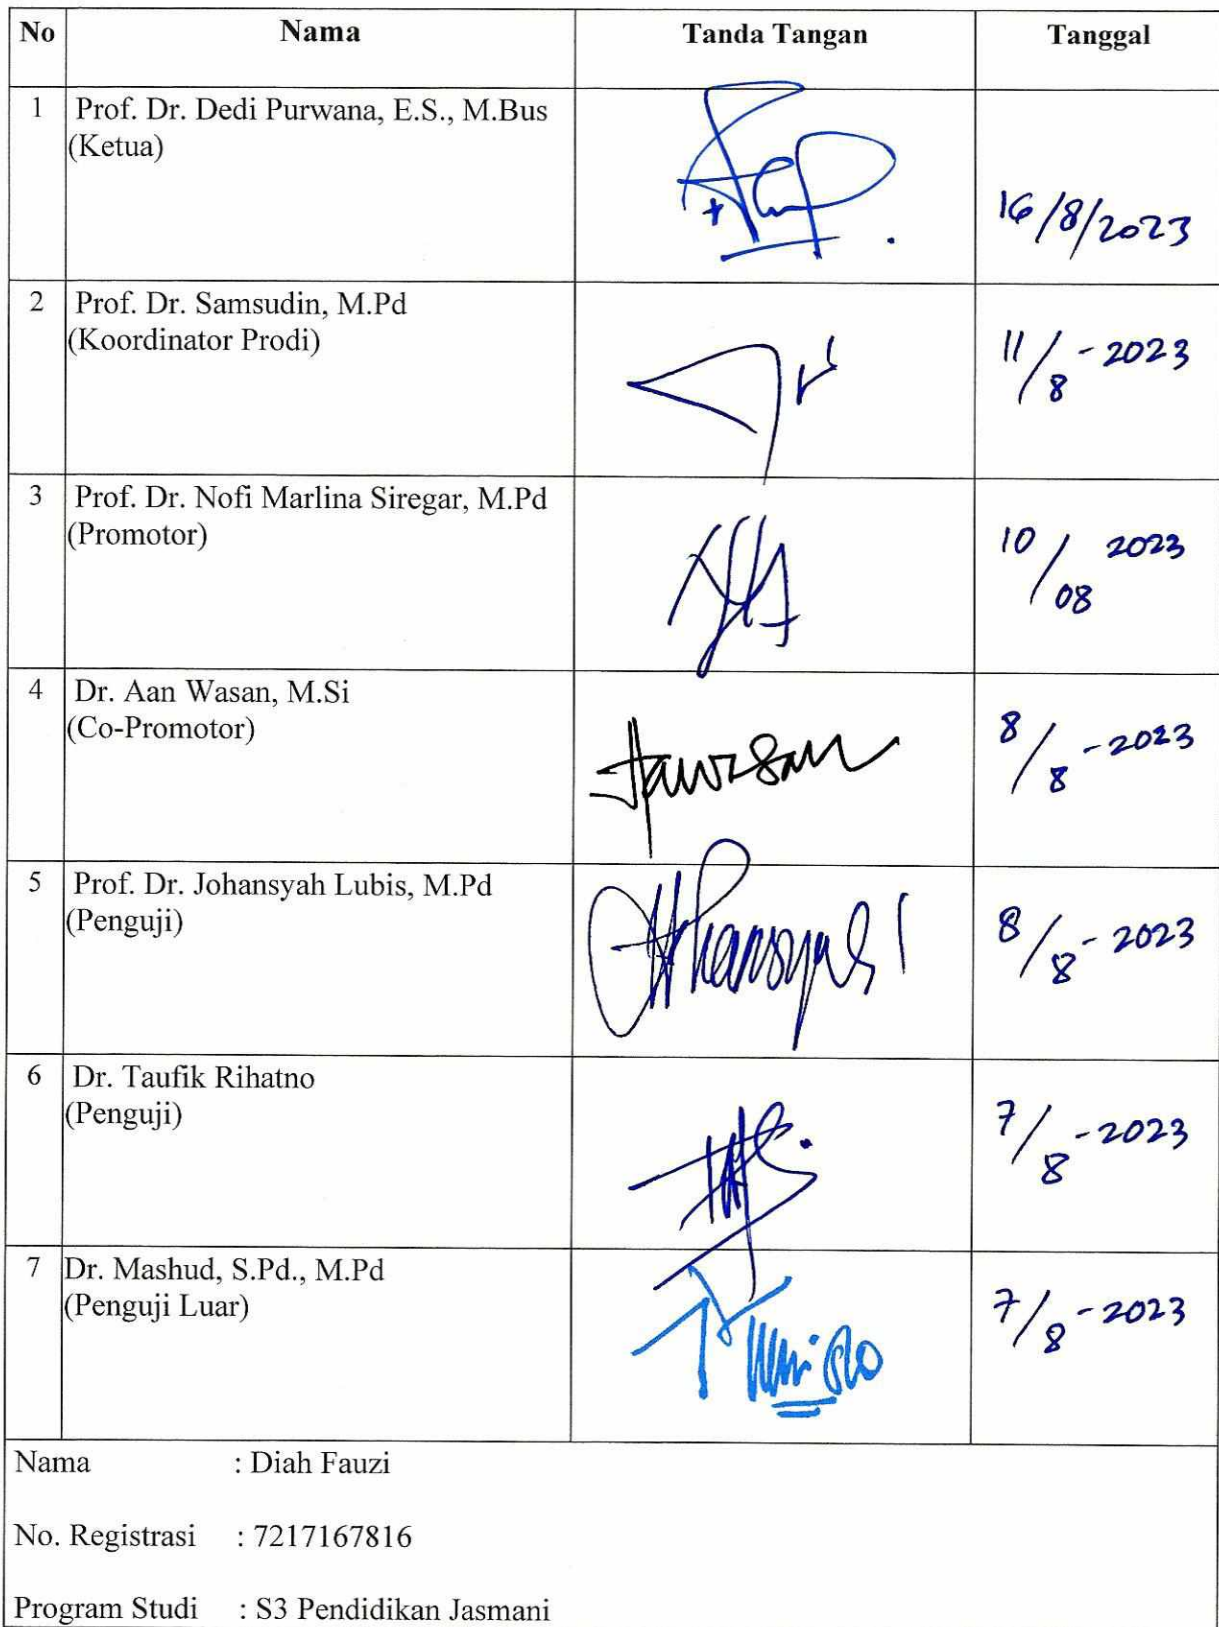 No Nama Tanda Tangan Tanggal
1 Prof. Dr. Dedi Purwana, E.S., M.Bus
(Ketua)
16/8/2023
2 Prof. Dr. Samsudin, M.Pd
(Koordinator Prodi)
11/8-2023
3 Prof. Dr. Nofi Marlina Siregar, M.Pd
(Promotor)
10/08 2023
4 Dr. Aan Wasan, M.Si
(Co-Promotor)
8/8-2023
5 Prof. Dr. Johansyah Lubis, M.Pd
(Penguji)
8/8-2023
6 Dr. Taufik Rihatno
(Penguji)
7/8-2023
7 Dr. Mashud, S.Pd., M.Pd
(Penguji Luar)
7/8-2023
Nama : Diah Fauzi
No. Registrasi : 7217167816
Program Studi : S3 Pendidikan Jasmani